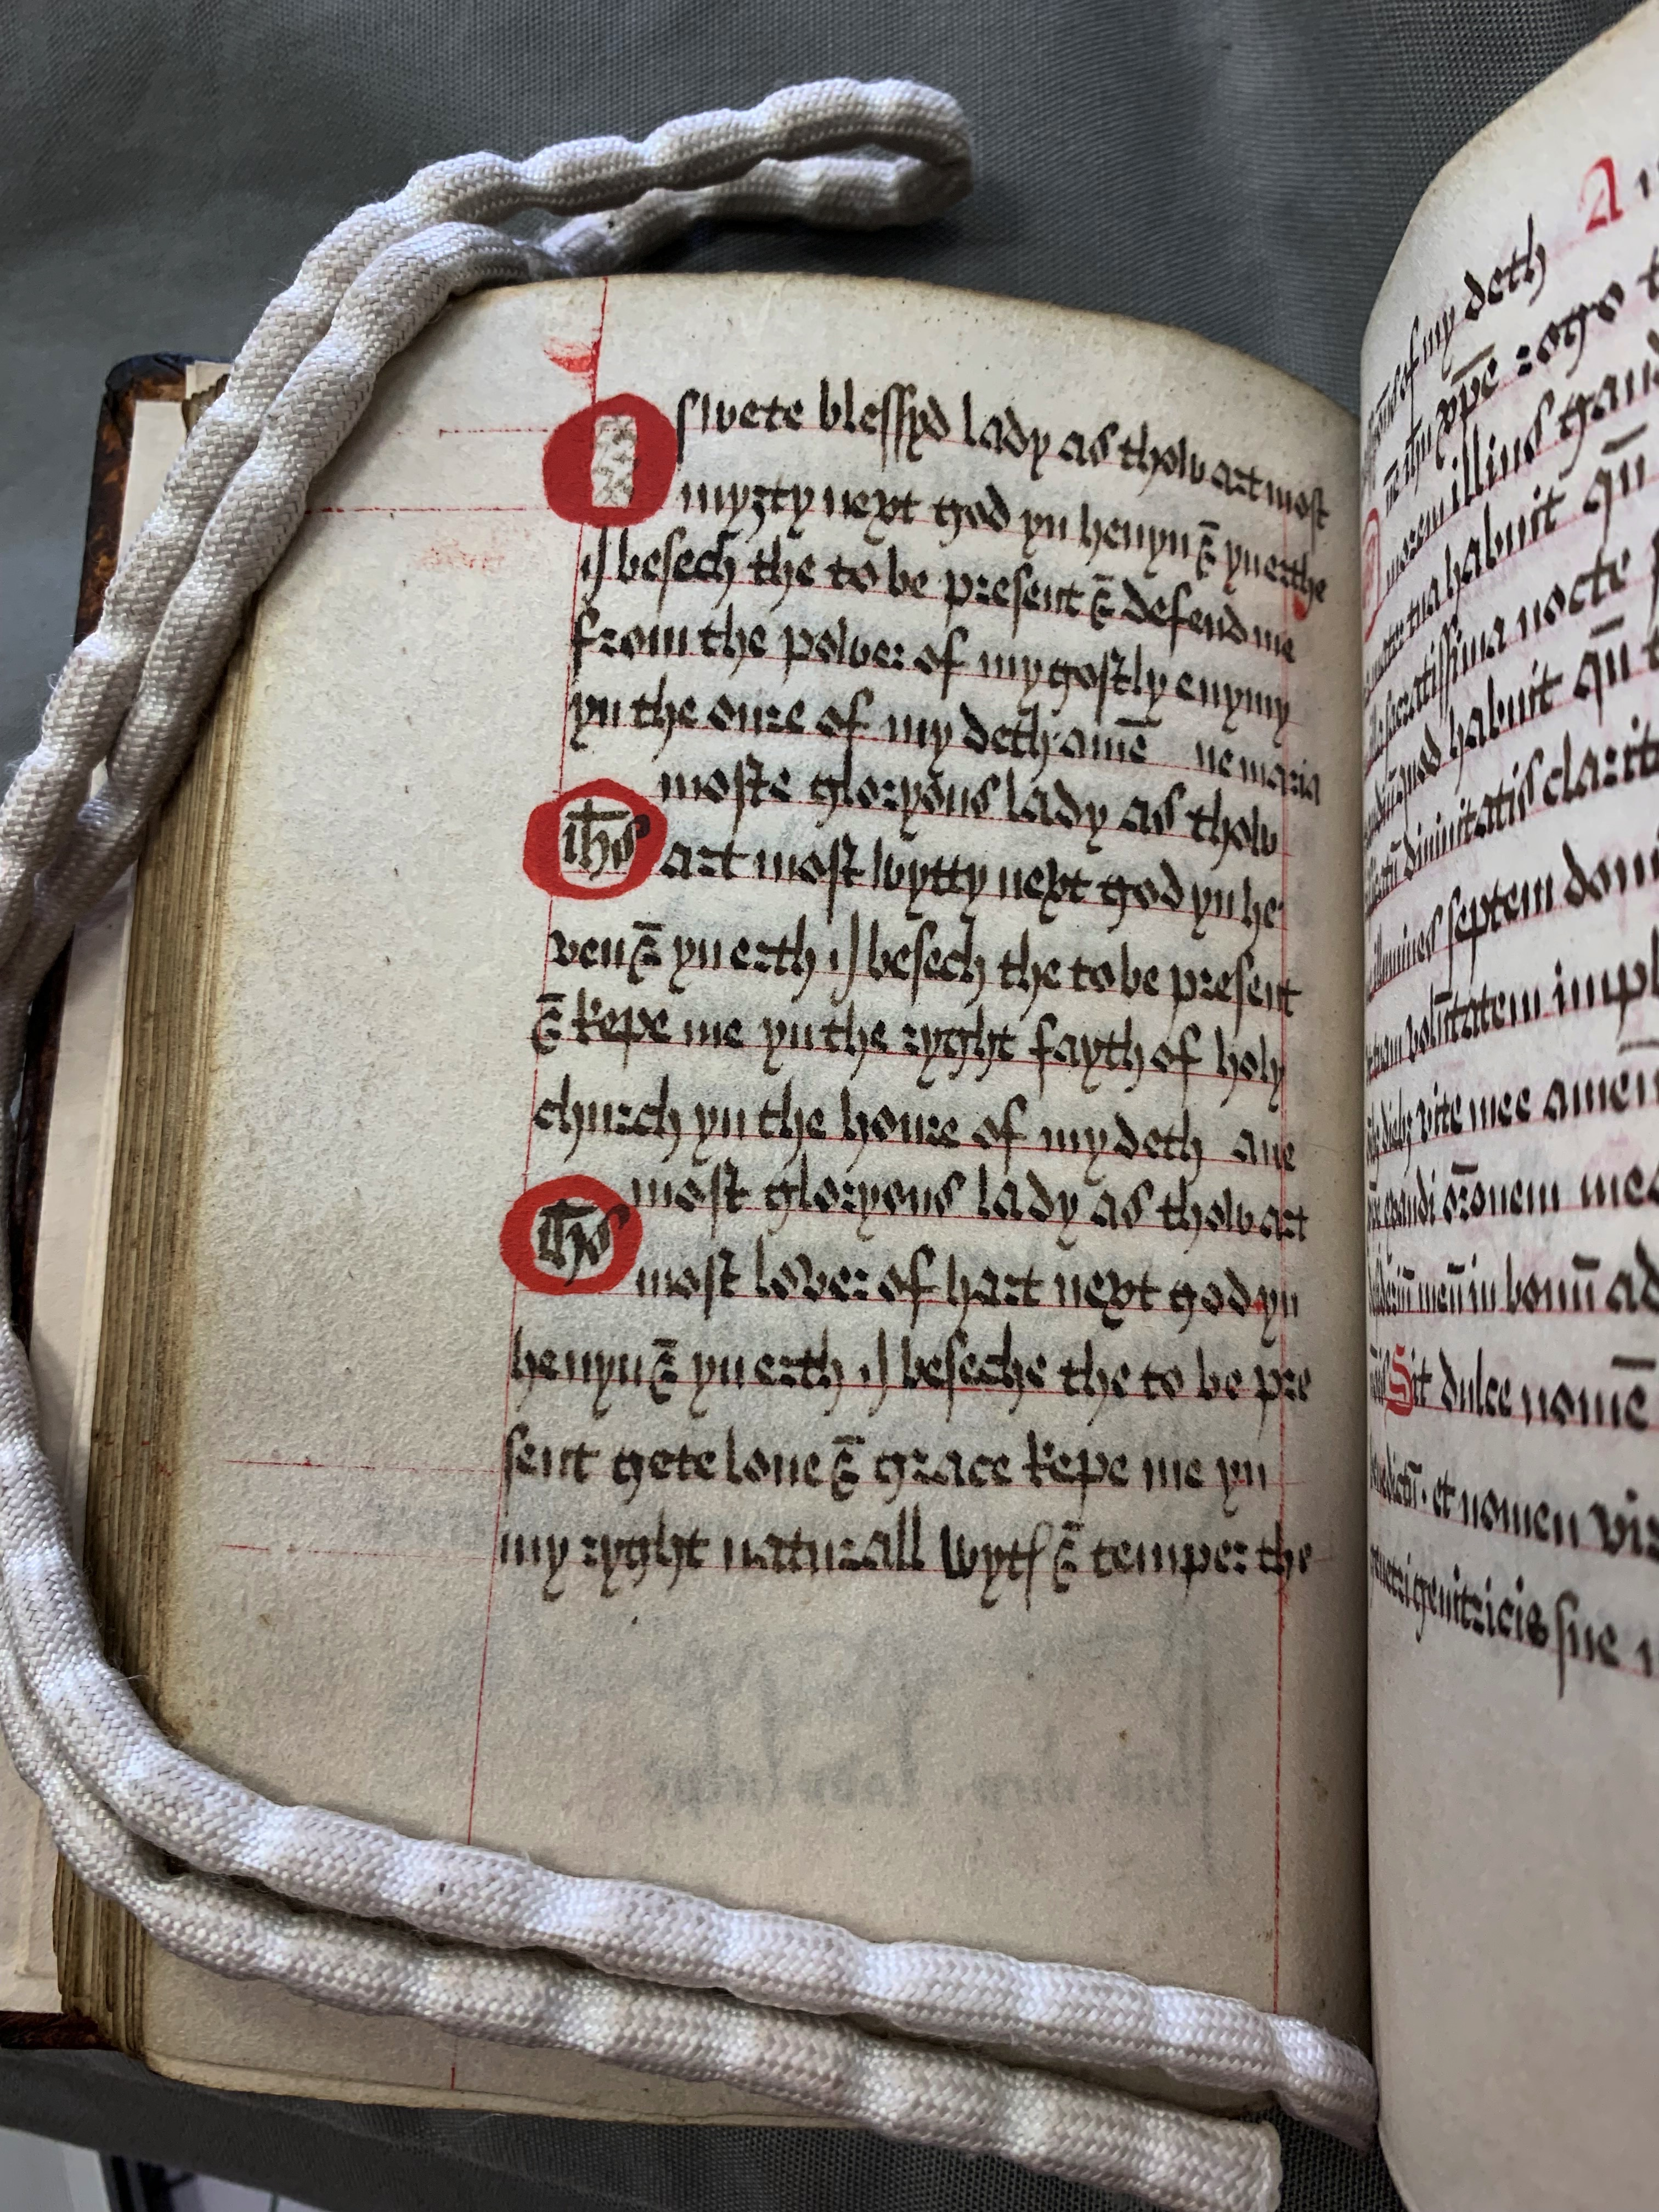 O swete blessyd lady as thow art most
myȝty next god yn heuyn & yn erthe
I besech the to be present & defend me
from the power of my gostly enymy
yn the oure of my deth amē ue maria
O ihs moste gloryous lady as thow
art most wytty next god yn he
ven & yn erth I besech the to be present
& kepe me yn the ryght fayth of holy
church yn the houre of my deth aue
O ihs most gloryous lady as thow art
most lover of hart next god yn
heuyn & yn erth I beseche the to be pre
sent gete loue & grace kepe me yn
my ryght naturall wytꝭ & temper the
A
of my deth
ihu xp̄e rogo
morem illius gaud
tua habuit qn̄
sacratissima nocte
quod habuit qū
diuinitatis clarit
illumines septem don
tuam volūtatem impl
vite mee amen
or̄onem mea
meū in bonū ad
Sit dulce nomē
et nomen vir
genitricis sue